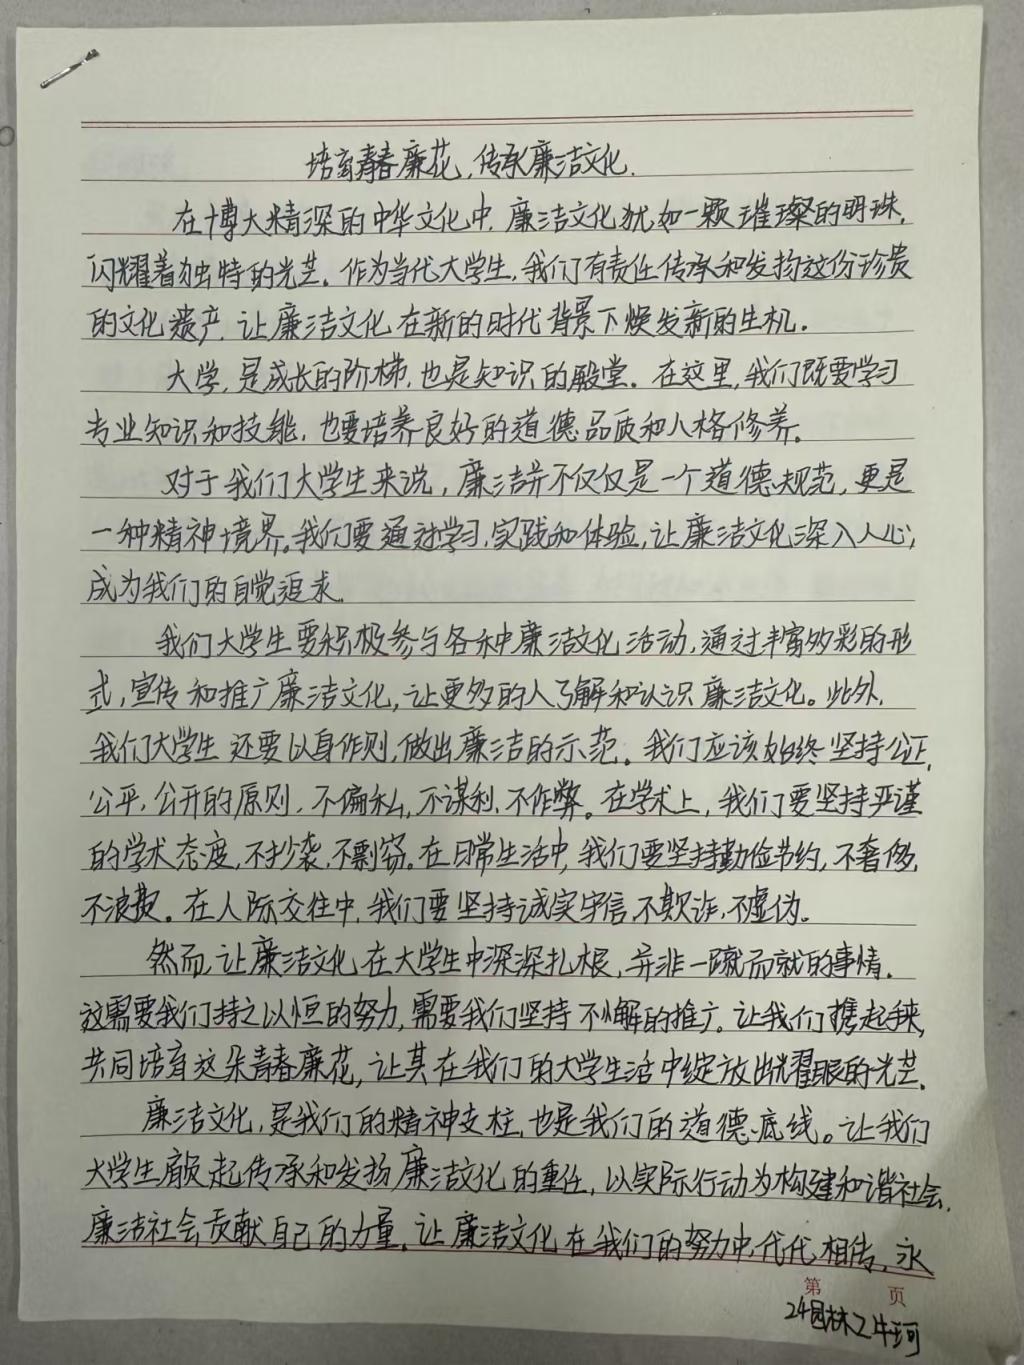 培育青春廉花，传承廉洁文化.
在博大精深的中华文化中，廉洁文化犹如一颗璀璨的明珠，
闪耀着独特的光芒。作为当代大学生，我们有责任传承和发扬这份珍贵
的文化遗产，让廉洁文化在新的时代背景下焕发新的生机.
大学，是成长的阶梯，也是知识的殿堂。在这里，我们既要学习
专业知识和技能，也要培养良好的道德品质和人格修养。
对于我们大学生来说，廉洁并不仅仅是一个道德规范，更是
一种精神境界。我们要通过学习、实践和体验，让廉洁文化深入人心，
成为我们的自觉追求.
我们大学生要积极参与各种廉洁文化活动，通过丰富多彩的形
式，宣传和推广廉洁文化，让更多的人了解和认识廉洁文化。此外，
我们大学生还要以身作则，做出廉洁的示范。我们应该始终坚持公正，
公平，公开的原则，不偏私，不谋利，不作弊。在学术上，我们要坚持严谨
的学术态度，不抄袭，不剽窃。在日常生活中，我们要坚持勤俭节约，不奢侈，
不浪费。在人际交往中，我们要坚持诚实守信，不欺诈，不虚伪。
然而，让廉洁文化在大学生中深深扎根，并非一蹴而就的事情.
这需要我们持之以恒的努力，需要我们坚持不懈的推广。让我们携起手来，
共同培育这朵青春廉花，让其在我们的大学生活中绽放出耀眼的光芒.
廉洁文化，是我们的精神支柱，也是我们的道德底线。让我们
大学生肩负起传承和发扬廉洁文化的重任，以实际行动为构建和谐社会，
廉洁社会贡献自己的力量，让廉洁文化在我们的努力中，代代相传，永
第 页
24园林2牛珂